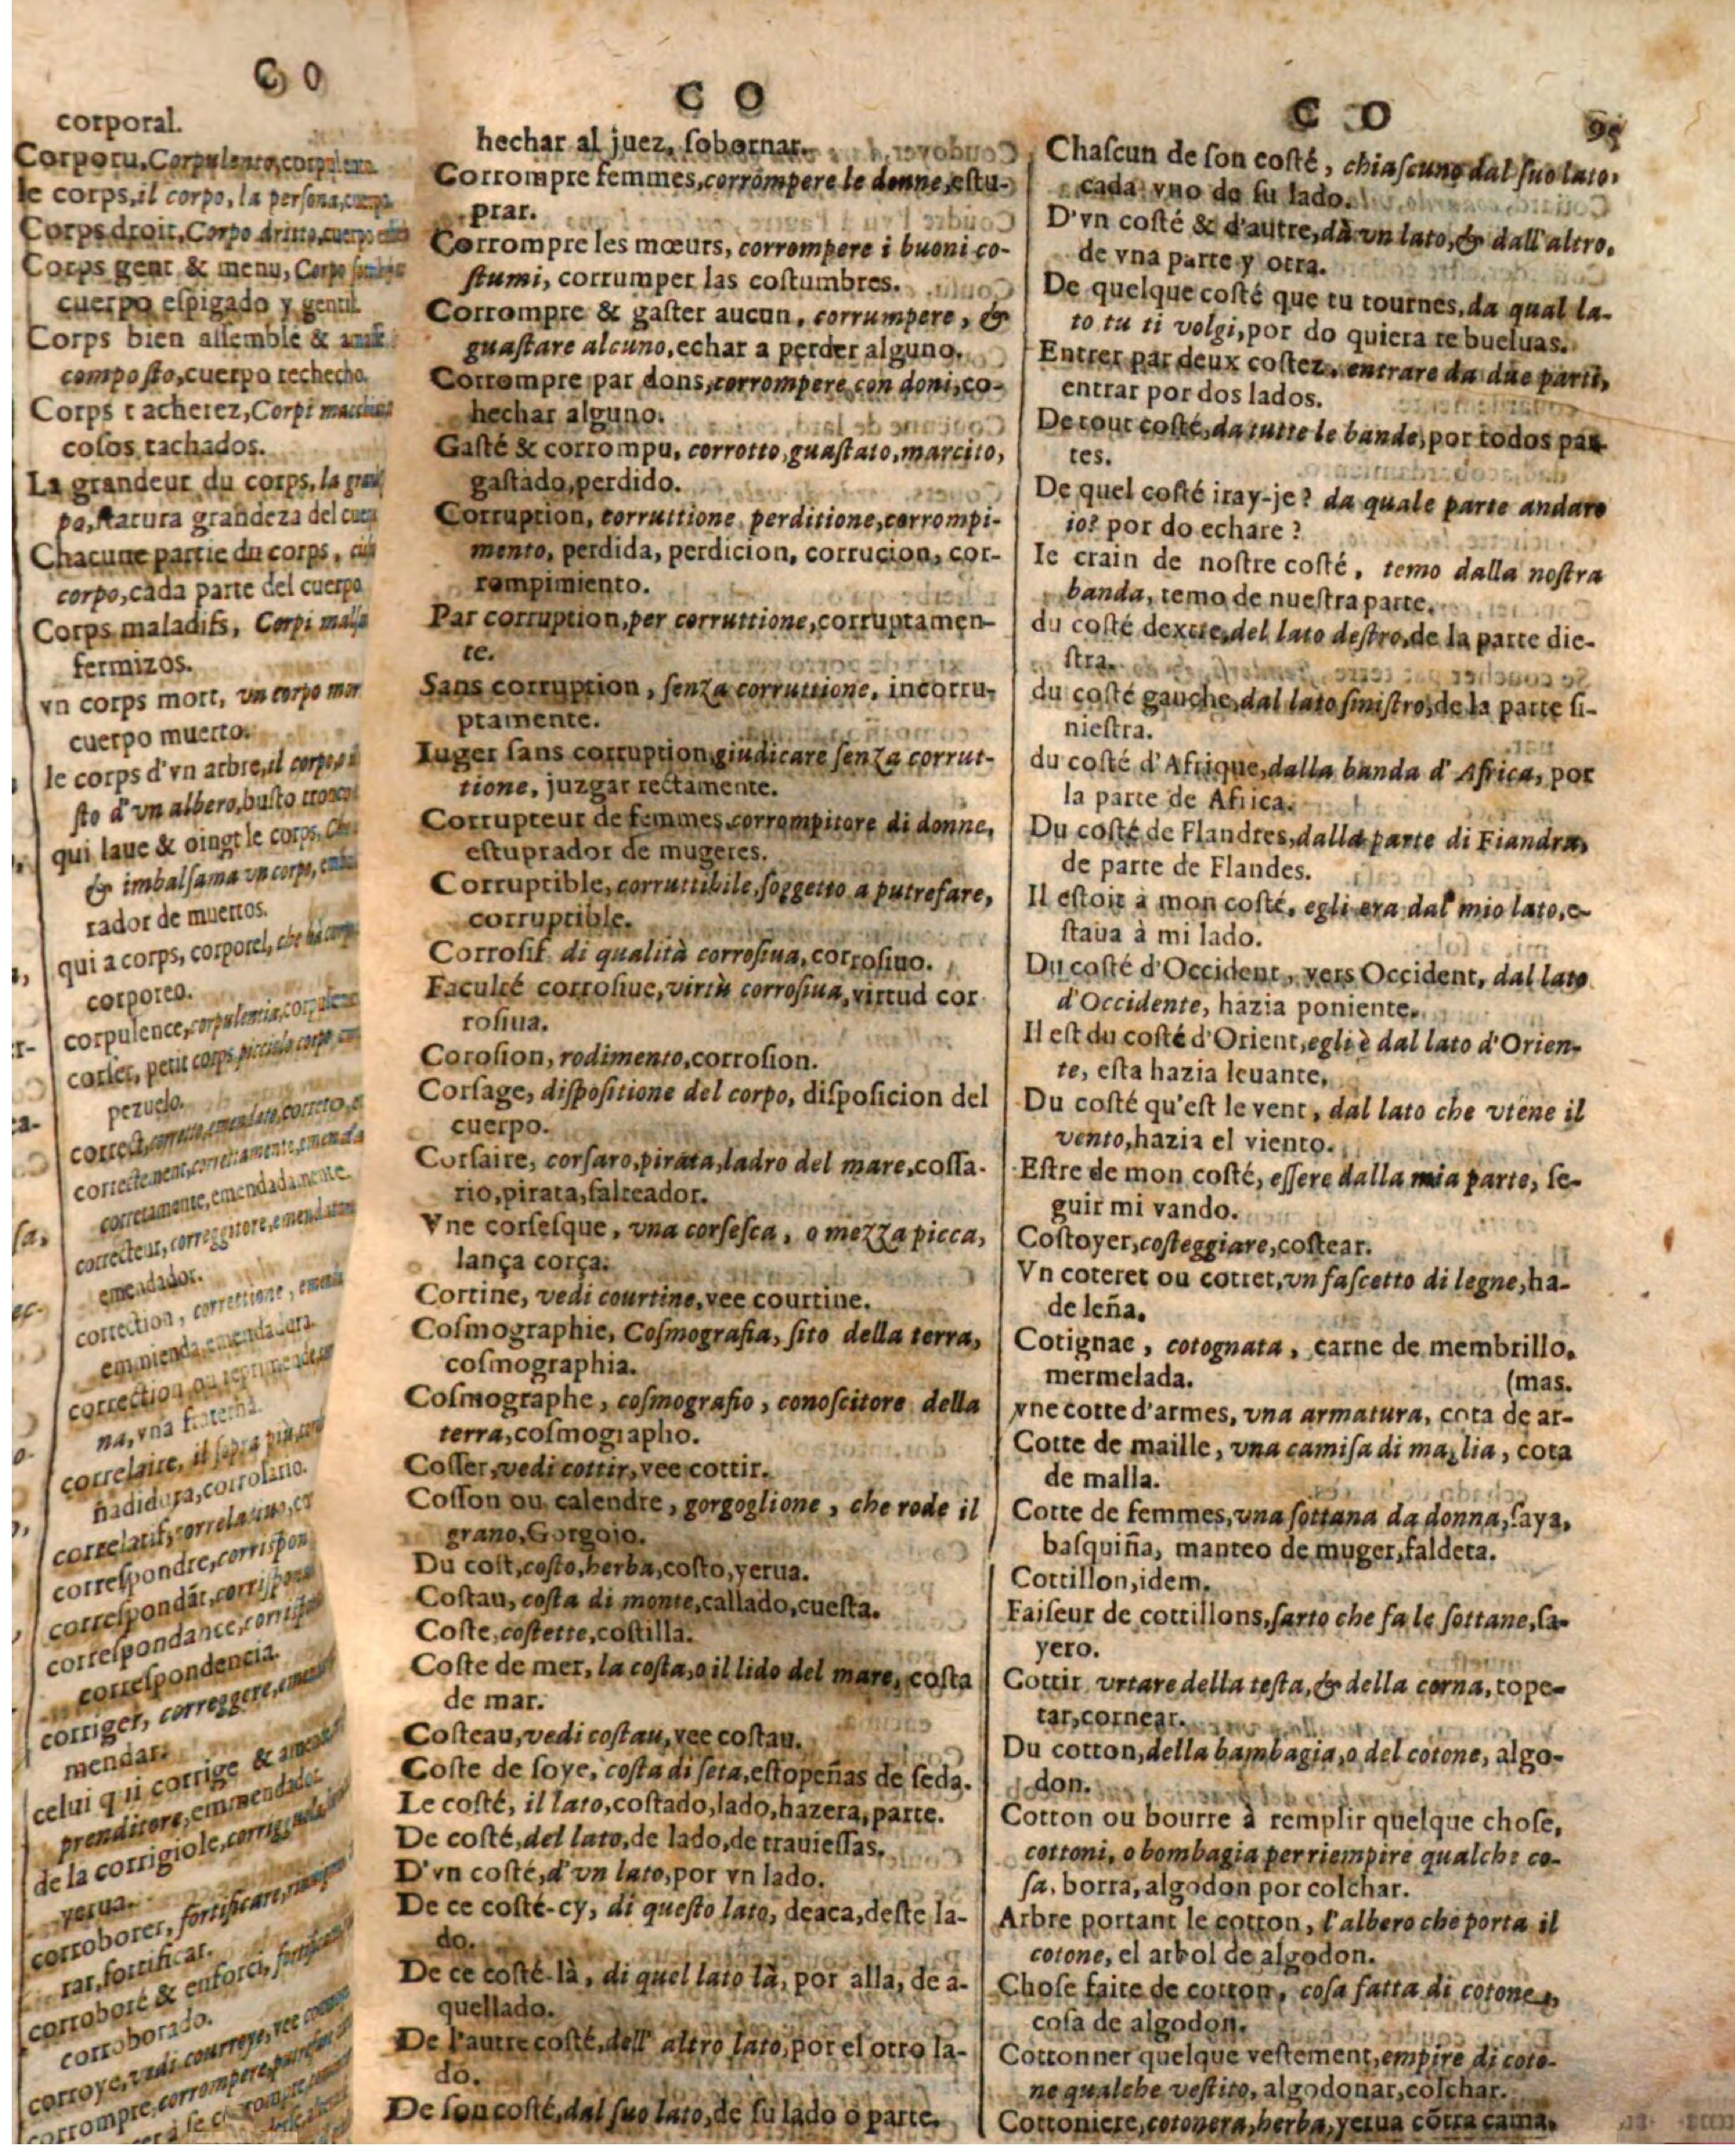 C O
corporal.
Corporu, Corpulento, corpulento.
le corps, il corpo, la persona, cuerpo.
Corps droit, Corpo dritto, cuerpo
Corps gent & menu, Corpo
cuerpo eſpigado y gentil.
Corps bien aſſemblé &
compoſto, cuerpo rechecho.
Corps tacherez, Corpi
coſos tachados.
La grandeur du corps, la
po, ſtatura grandeza del
Chacune partie du corps,
corpo, cada parte del cuerpo
Corps maladifs, Corpi
fermizos.
vn corps mort, vn corpo
cuerpo muerto.
le corps d'vn arbre, il corpo,
ſto d'vn albero, buſto
qui laue & oingt le corps,
& imbalſama vn corpo,
rador de muertos.
qui a corps, corporel,
corporeo.
corpulence, corpulentia,
corſet, petit corps, picciolo corpo,
pezuelo.
correct, corretto, emendato, correto,
correctement, correttamente,
corretamente, emendadamente.
correcteur, correggitore,
emendador.
correction, correttione,
emmienda, emendadura.
correction ou
na, vna fraterna.
correlaire, il ſopra più,
ñadidura, corrolario.
correlatif, correlatiuo,
correſpondre,
correſpondãt,
correſpondance,
correſpondencia.
corriger, correggere,
mendar.
celui qui corrige &
prenditore, emmendador.
de la corrigiole,
yerua.
corroborer, fortificare,
rar, fortificar.
corroboré & enforci,
corroborado.
corroye, vedi courroye, vee
corrompre, corrompere,
C O
hechar al juez, ſobornar.
Corrompre femmes, corrompere le donne, eſtu-
prar.
Corrompre les mœurs, corrompere i buoni co-
ſtumi, corrumper las coſtumbres.
Corrompre & gaſter aucun, corrumpere, &
guaſtare alcuno, echar a perder alguno.
Corrompre par dons, corrompere con doni, co-
hechar alguno.
Gaſté & corrompu, corrotto, guaſtato, marcito,
gaſtado, perdido.
Corruption, corruttione, perditione, corrompi-
mento, perdida, perdicion, corrucion, cor-
rompimiento.
Par corruption, per corruttione, corruptamen-
te.
Sans corruption, ſenza corruttione, incorru-
ptamente.
Iuger ſans corruption, giudicare ſenza corrut-
tione, juzgar rectamente.
Corrupteur de femmes, corrompitore di donne,
eſtuprador de mugeres.
Corruptible, corruttibile, ſoggetto a putrefare,
corruptible.
Corroſif, di qualità corroſiua, corroſiuo.
Faculté corroſiue, virtù corroſiua, virtud cor
roſiua.
Coroſion, rodimento, corroſion.
Corſage, diſpoſitione del corpo, diſpoſicion del
cuerpo.
Corſaire, corſaro, pirata, ladro del mare, coſſa-
rio, pirata, ſalteador.
Vne corſeſque, vna corſeſca, o mezza picca,
lança corça.
Cortine, vedi courtine, vee courtine.
Coſmographie, Coſmografia, ſito della terra,
coſmographia.
Coſmographe, coſmografio, conoſcitore della
terra, coſmographo.
Coſſer, vedi cottir, vee cottir.
Coſſon ou calendre, gorgoglione, che rode il
grano, Gorgoio.
Du coſt, coſto, herba, coſto, yerua.
Coſtau, coſta di monte, callado, cueſta.
Coſte, coſtette, coſtilla.
Coſte de mer, la coſta, o il lido del mare, coſta
de mar.
Coſteau, vedi coſtau, vee coſtau.
Coſte de ſoye, coſta di ſeta, eſtopeñas de ſeda.
Le coſté, il lato, coſtado, lado, hazera, parte.
De coſté, del lato, de lado, de trauieſſas.
D'vn coſté, d'vn lato, por vn lado.
De ce coſté-cy, di queſto lato, deaca, deſte la-
do.
De ce coſté-là, di quel lato là, por alla, de a-
quellado.
De l'autre coſté, dell' altro lato, por el otro la-
do.
De ſon coſté, dal ſuo lato, de ſu lado o parte.
C O 95
Chaſcun de ſon coſté, chiaſcuno dal ſuo lato,
cada vno de ſu lado.
D'vn coſté & d'autre, dà vn lato, & dall'altro,
de vna parte y otra.
De quelque coſté que tu tournes, da qual la-
to tu ti volgi, por do quiera te bueluas.
Entrer par deux coſtez, entrare da due parti,
entrar por dos lados.
De tout coſté, da tutte le bande, por todos par-
tes.
De quel coſté iray-je? da quale parte andaro
io? por do echare?
Ie crain de noſtre coſté, temo dalla noſtra
banda, temo de nueſtra parte.
du coſté dextre, del lato deſtro, de la parte die-
ſtra.
du coſté gauche, dal lato ſiniſtro, de la parte ſi-
nieſtra.
du coſté d'Afrique, dalla banda d'Africa, por
la parte de Africa.
Du coſté de Flandres, dalla parte di Fiandra,
de parte de Flandes.
Il eſtoit à mon coſté, egli era dal mio lato, e-
ſtaua à mi lado.
Du coſté d'Occident, vers Occident, dal lato
d'Occidente, hazia poniente.
Il eſt du coſté d'Orient, egli è dal lato d'Orien-
te, eſta hazia leuante.
Du coſté qu'eſt le vent, dal lato che viene il
vento, hazia el viento.
Eſtre de mon coſté, eſſere dalla mia parte, ſe-
guir mi vando.
Coſtoyer, coſteggiare, coſtear.
Vn coteret ou cottret, vn faſcetto di legne, ha-
de leña.
Cotignac, cotognata, carne de membrillo,
mermelada. (mas.
vne cotte d'armes, vna armatura, cota de ar-
Cotte de maille, vna camiſa di maglia, cota
de malla.
Cotte de femmes, vna ſottana da donna, ſaya,
baſquiña, manteo de muger, faldeta.
Cottillon, idem.
Faiſeur de cottillons, ſarto che fa le ſottane, ſa-
yero.
Cottir, vrtare della teſta, & della corna, tope-
tar, cornear.
Du cotton, della bambagia, o del cotone, algo-
don.
Cotton ou bourre à remplir quelque choſe,
cottoni, o bombagia per riempire qualche co-
ſa, borra, algodon por colchar.
Arbre portant le cotton, l'albero che porta il
cotone, el arbol de algodon.
Choſe faite de cotton, coſa fatta di cotone,
coſa de algodon.
Cottonner quelque veſtement, empire di coto-
ne qualche veſtito, algodonar, colchar.
Cottoniere, cotonera, herba, yerua cõtra cama.